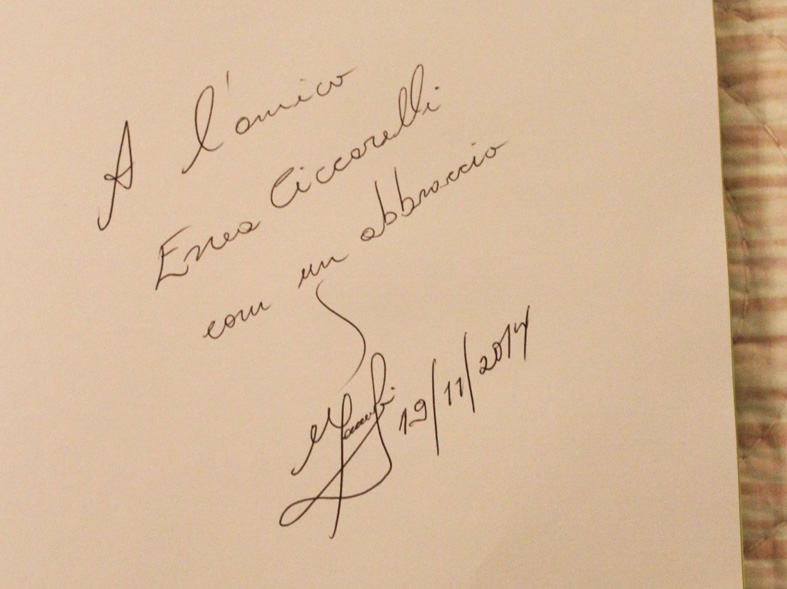 A l'amico
Enea Ciccarelli
com un abbraccio
19/11/2014